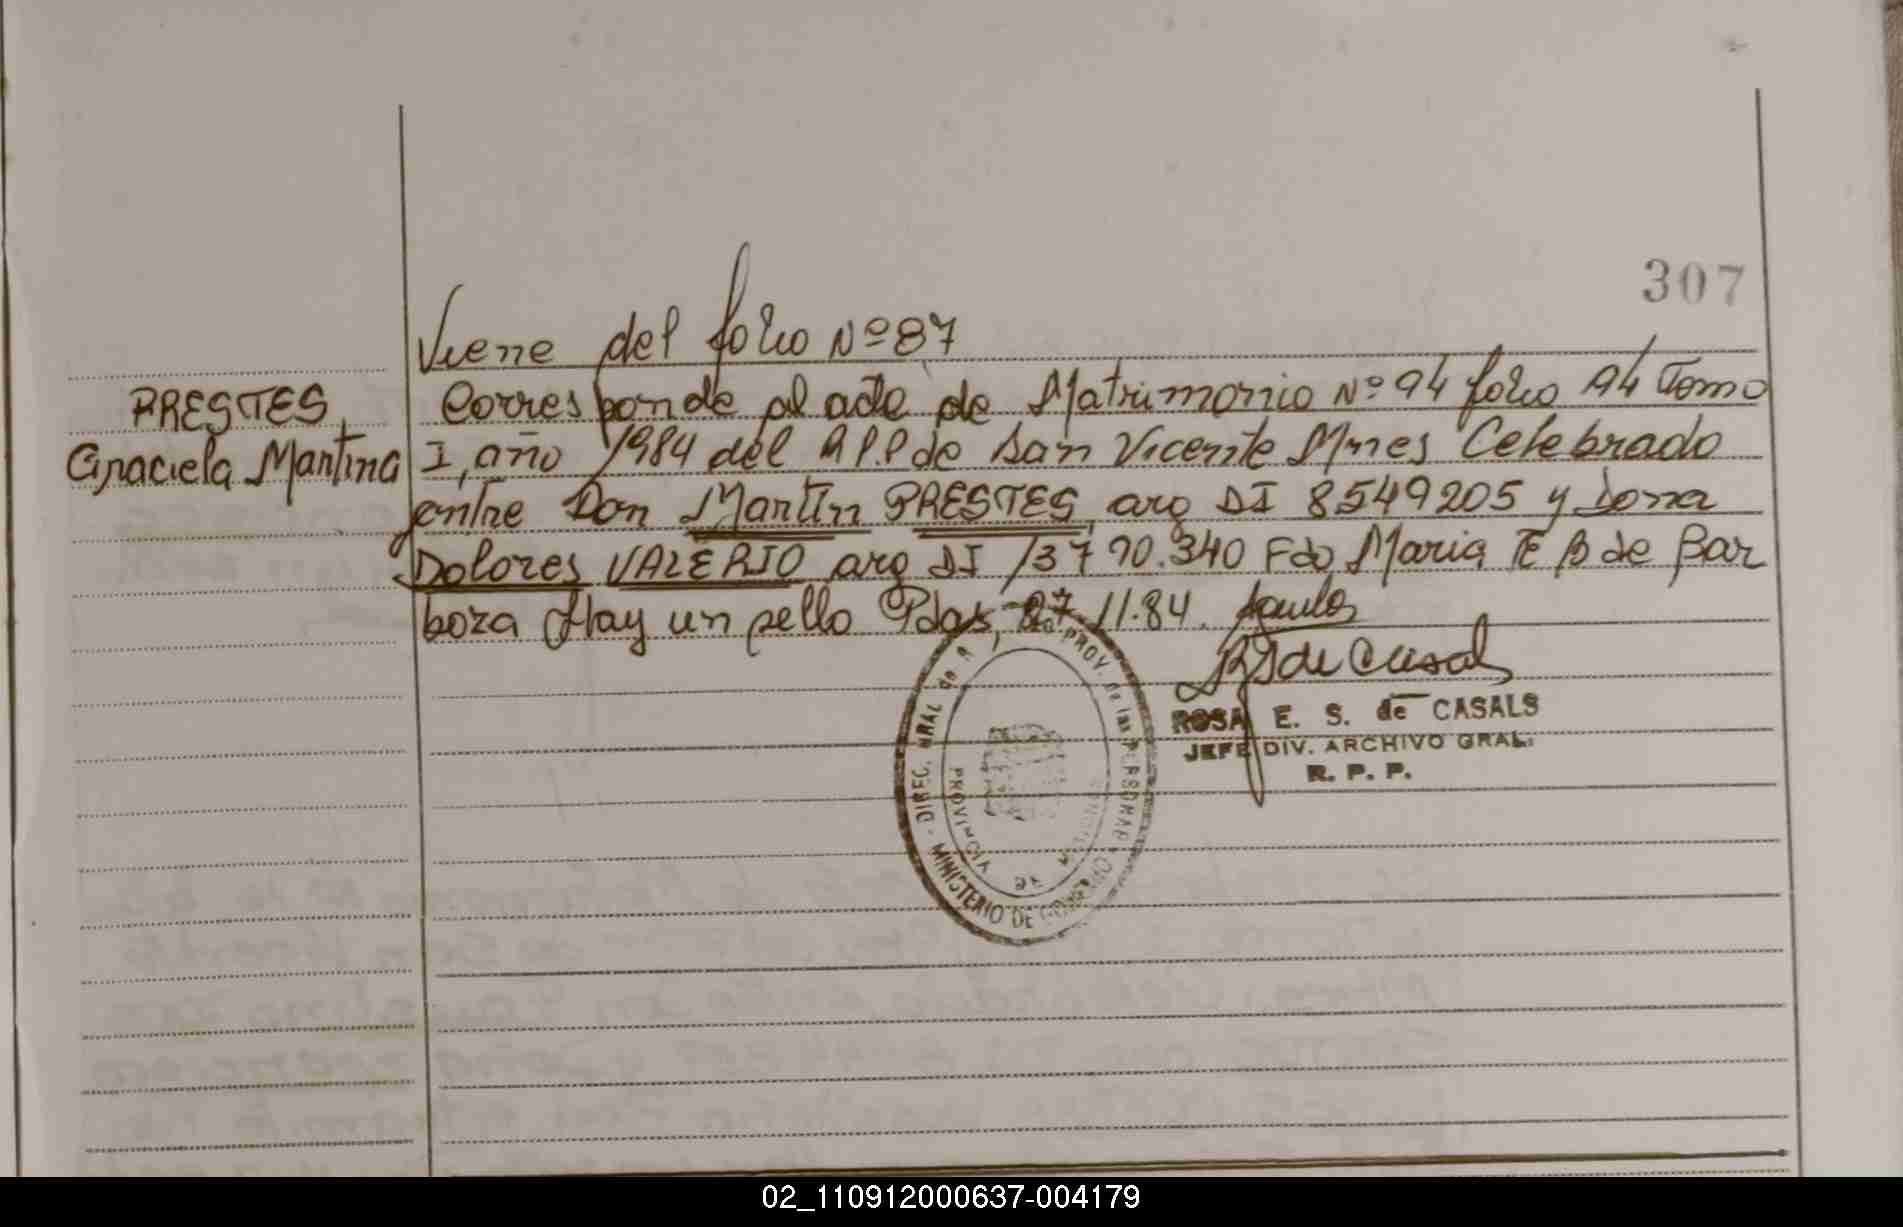 307
Viene del folio Nº 87
PRESTES,
Graciela Martina
Corresponde al acta de Matrimonio Nº 94 folio 94 Tomo
I, año 1984 del R.P.P de San Vicente Mnes Celebrado
entre Don Martin PRESTES, arg DI 8549205 y Dona
Dolores VALERIO arg DI 13790.340 Fdo Maria E B de Bar
boza Hay un sello Pdas, 27 11.84.
R S de Casals
ROSA E. S. de CASALS
JEFE DIV. ARCHIVO GRAL.
R. P. P.
DIREC. GRAL de R PROV. de las PERSONAS
MINISTERIO DE GOBIERNO
PROVINCIA DE MISIONES
02_110912000637-004179